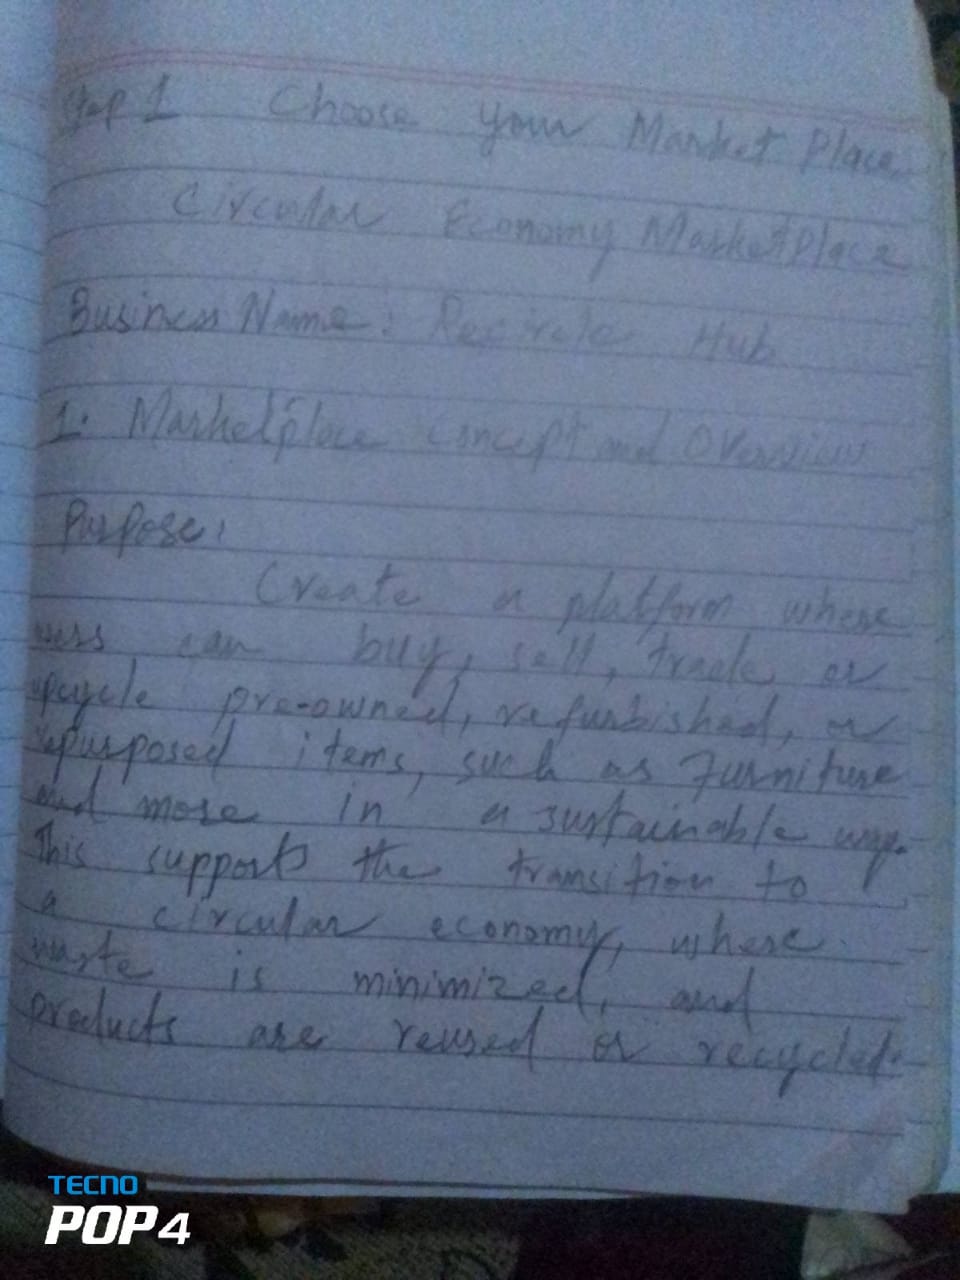 Step 1 Choose your Market Place
Circular Economy Marketplace
Business Name: Recircle Hub
1. Marketplace Concept and Overview
Purpose:
Create a platform where
users can buy, sell, trade or
upcycle pre-owned, refurbished, or
repurposed items, such as Furniture
and more in a sustainable way.
This supports the transition to
a circular economy, where
waste is minimized, and
products are reused or recycled.
TECNO
POP 4